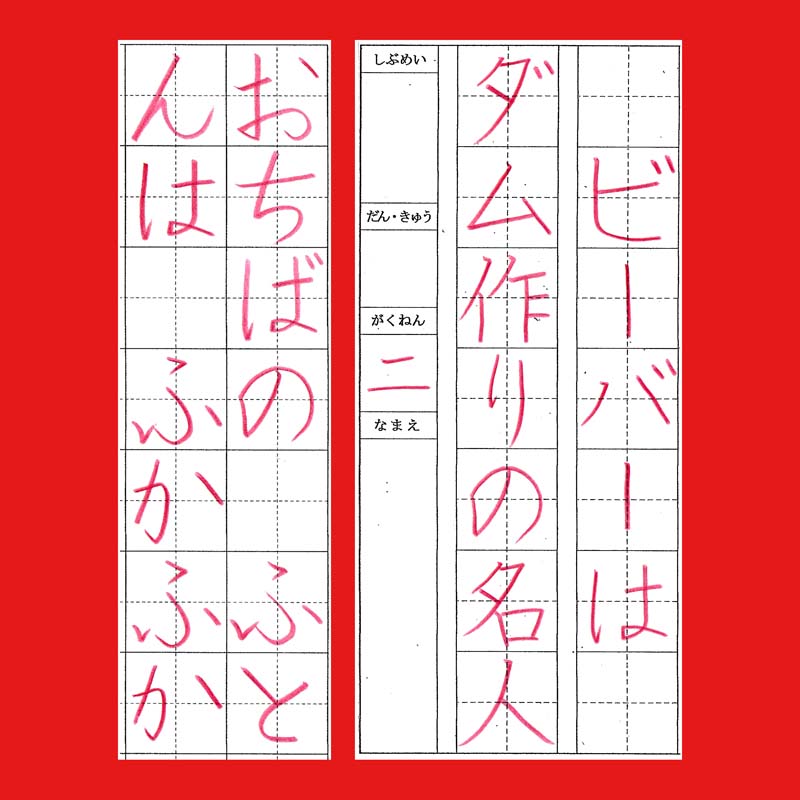 ビーバーは
ダム作りの名人
しぶめい
だん・きゅう
がくねん
二
なまえ
おちばの ふと
んは ふかふか